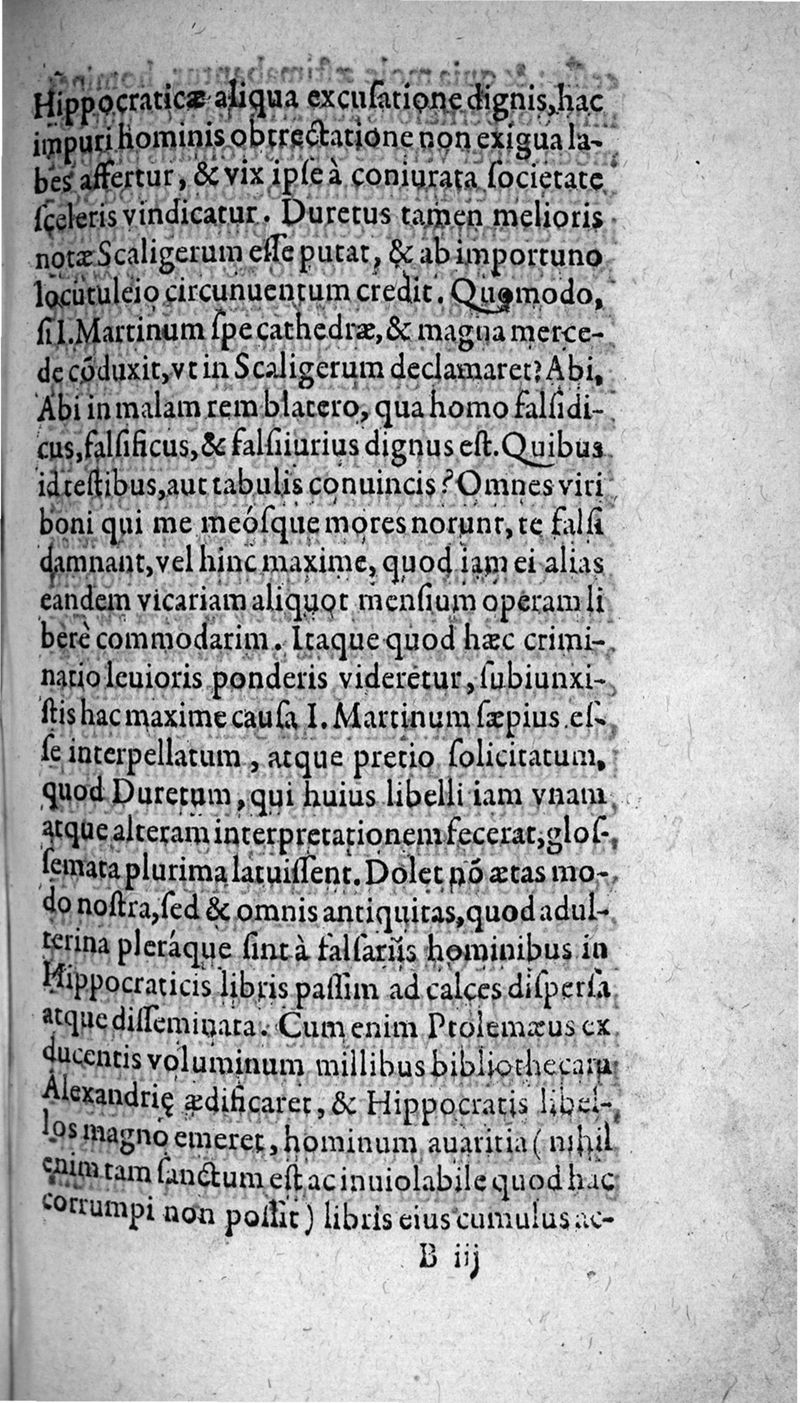 Hippocraticæ aliqua excuſatione dignis, hac
impuri hominis obtrectatione non exigua la-
bes affertur, & vix ipſe à coniurata ſocietate
ſceleris vindicatur. Duretus tamen melioris
notæ Scaligerum eſſe putat, & ab importuno
locutuleio circunuentum credit. Quomodo,
ſi I. Martinum ſpe cathedræ, & magna merce-
de cõduxit, vt in Scaligerum declamaret? Abi,
Abi in malam rem blatero, qua homo falſidi-
cus, falſificus, & falſiiurius dignus eſt. Quibus
id teſtibus, aut tabulis conuincis? Omnes viri
boni qui me meóſque mores norunt, te falſi
damnant, vel hinc maxime, quod iam ei alias
eandem vicariam aliquot menſium operam li
berè commodarim. Itaque quod hæc crimi-
natio leuioris ponderis videretur, ſubiunxi-
ſtis hac maxime cauſa I. Martinum ſæpius eſ-
ſe interpellatum, atque pretio ſolicitatum,
quod Duretum, qui huius libelli iam vnam
atque alteram interpretationem fecerat, gloſ-
ſemata plurima latuiſſent. Dolet nõ ætas mo-
do noſtra, ſed & omnis antiquitas, quod adul-
terina pleráque ſint à falſariis hominibus in
Hippocraticis libris paſſim ad calces diſperſa
atque diſſeminata. Cum enim Ptolemæus ex
ducentis voluminum millibus bibliothecam
Alexandrię ædificaret, & Hippocratis libel-
los magno emeret, hominum auaritia (nihil
enim tam ſanctum eſt ac inuiolabile quod hac
corrumpi non poſſit) libris eius cumulus ac-
B iij